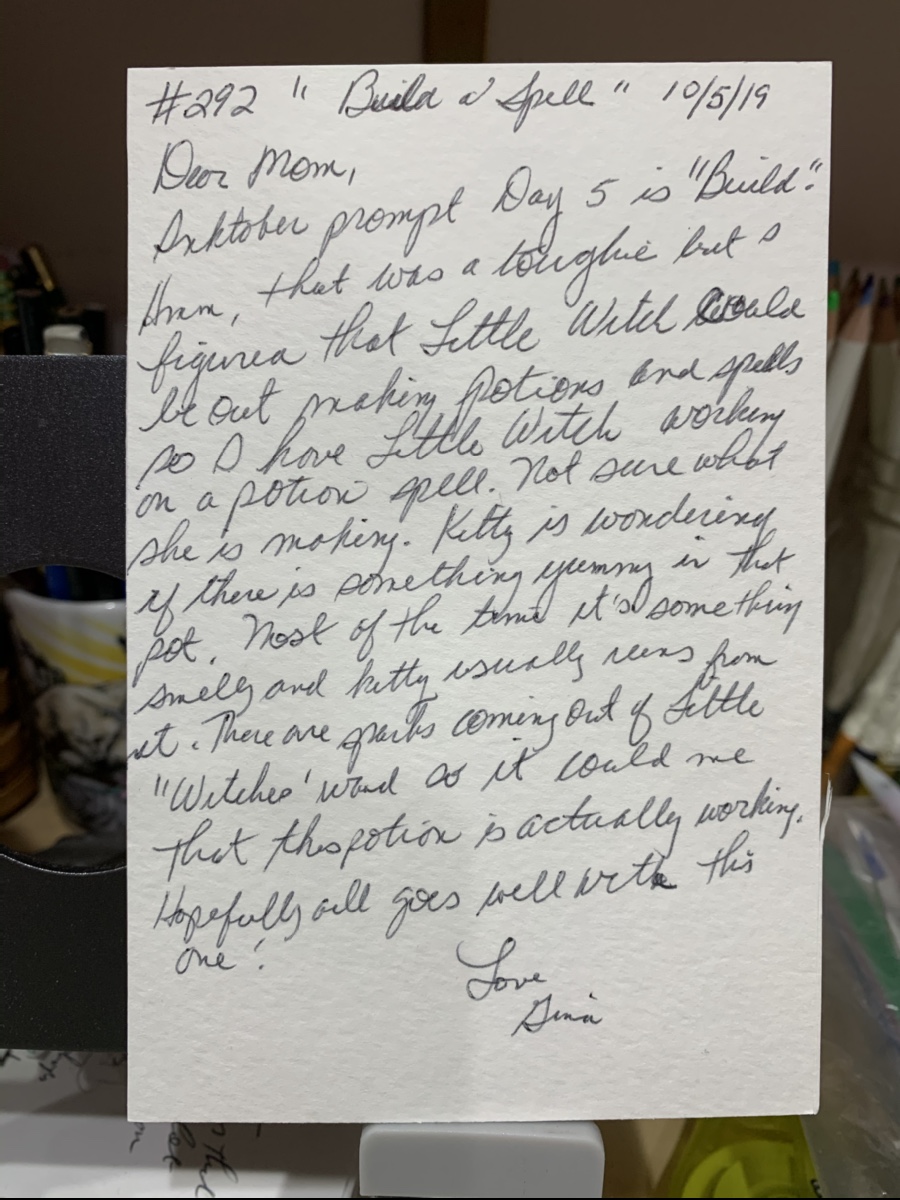 #292 " Build a' Spell " 10/5/19
Dear Mom,
Inktober prompt Day 5 is "Build."
Hmm, that was a toughie but I
figured that Little Witch would
be out making potions and spells
so I have Little Witch working
on a potion spell. Not sure what
she is making. Kitty is wondering
if there is something yummy in that
pot. Most of the time it's something
smelly and kitty usually runs from
it. There are sparks coming out of Little
"Witches' wand so it could me
that this potion is actually working.
Hopefully all goes well with this
one!
Love
Gina